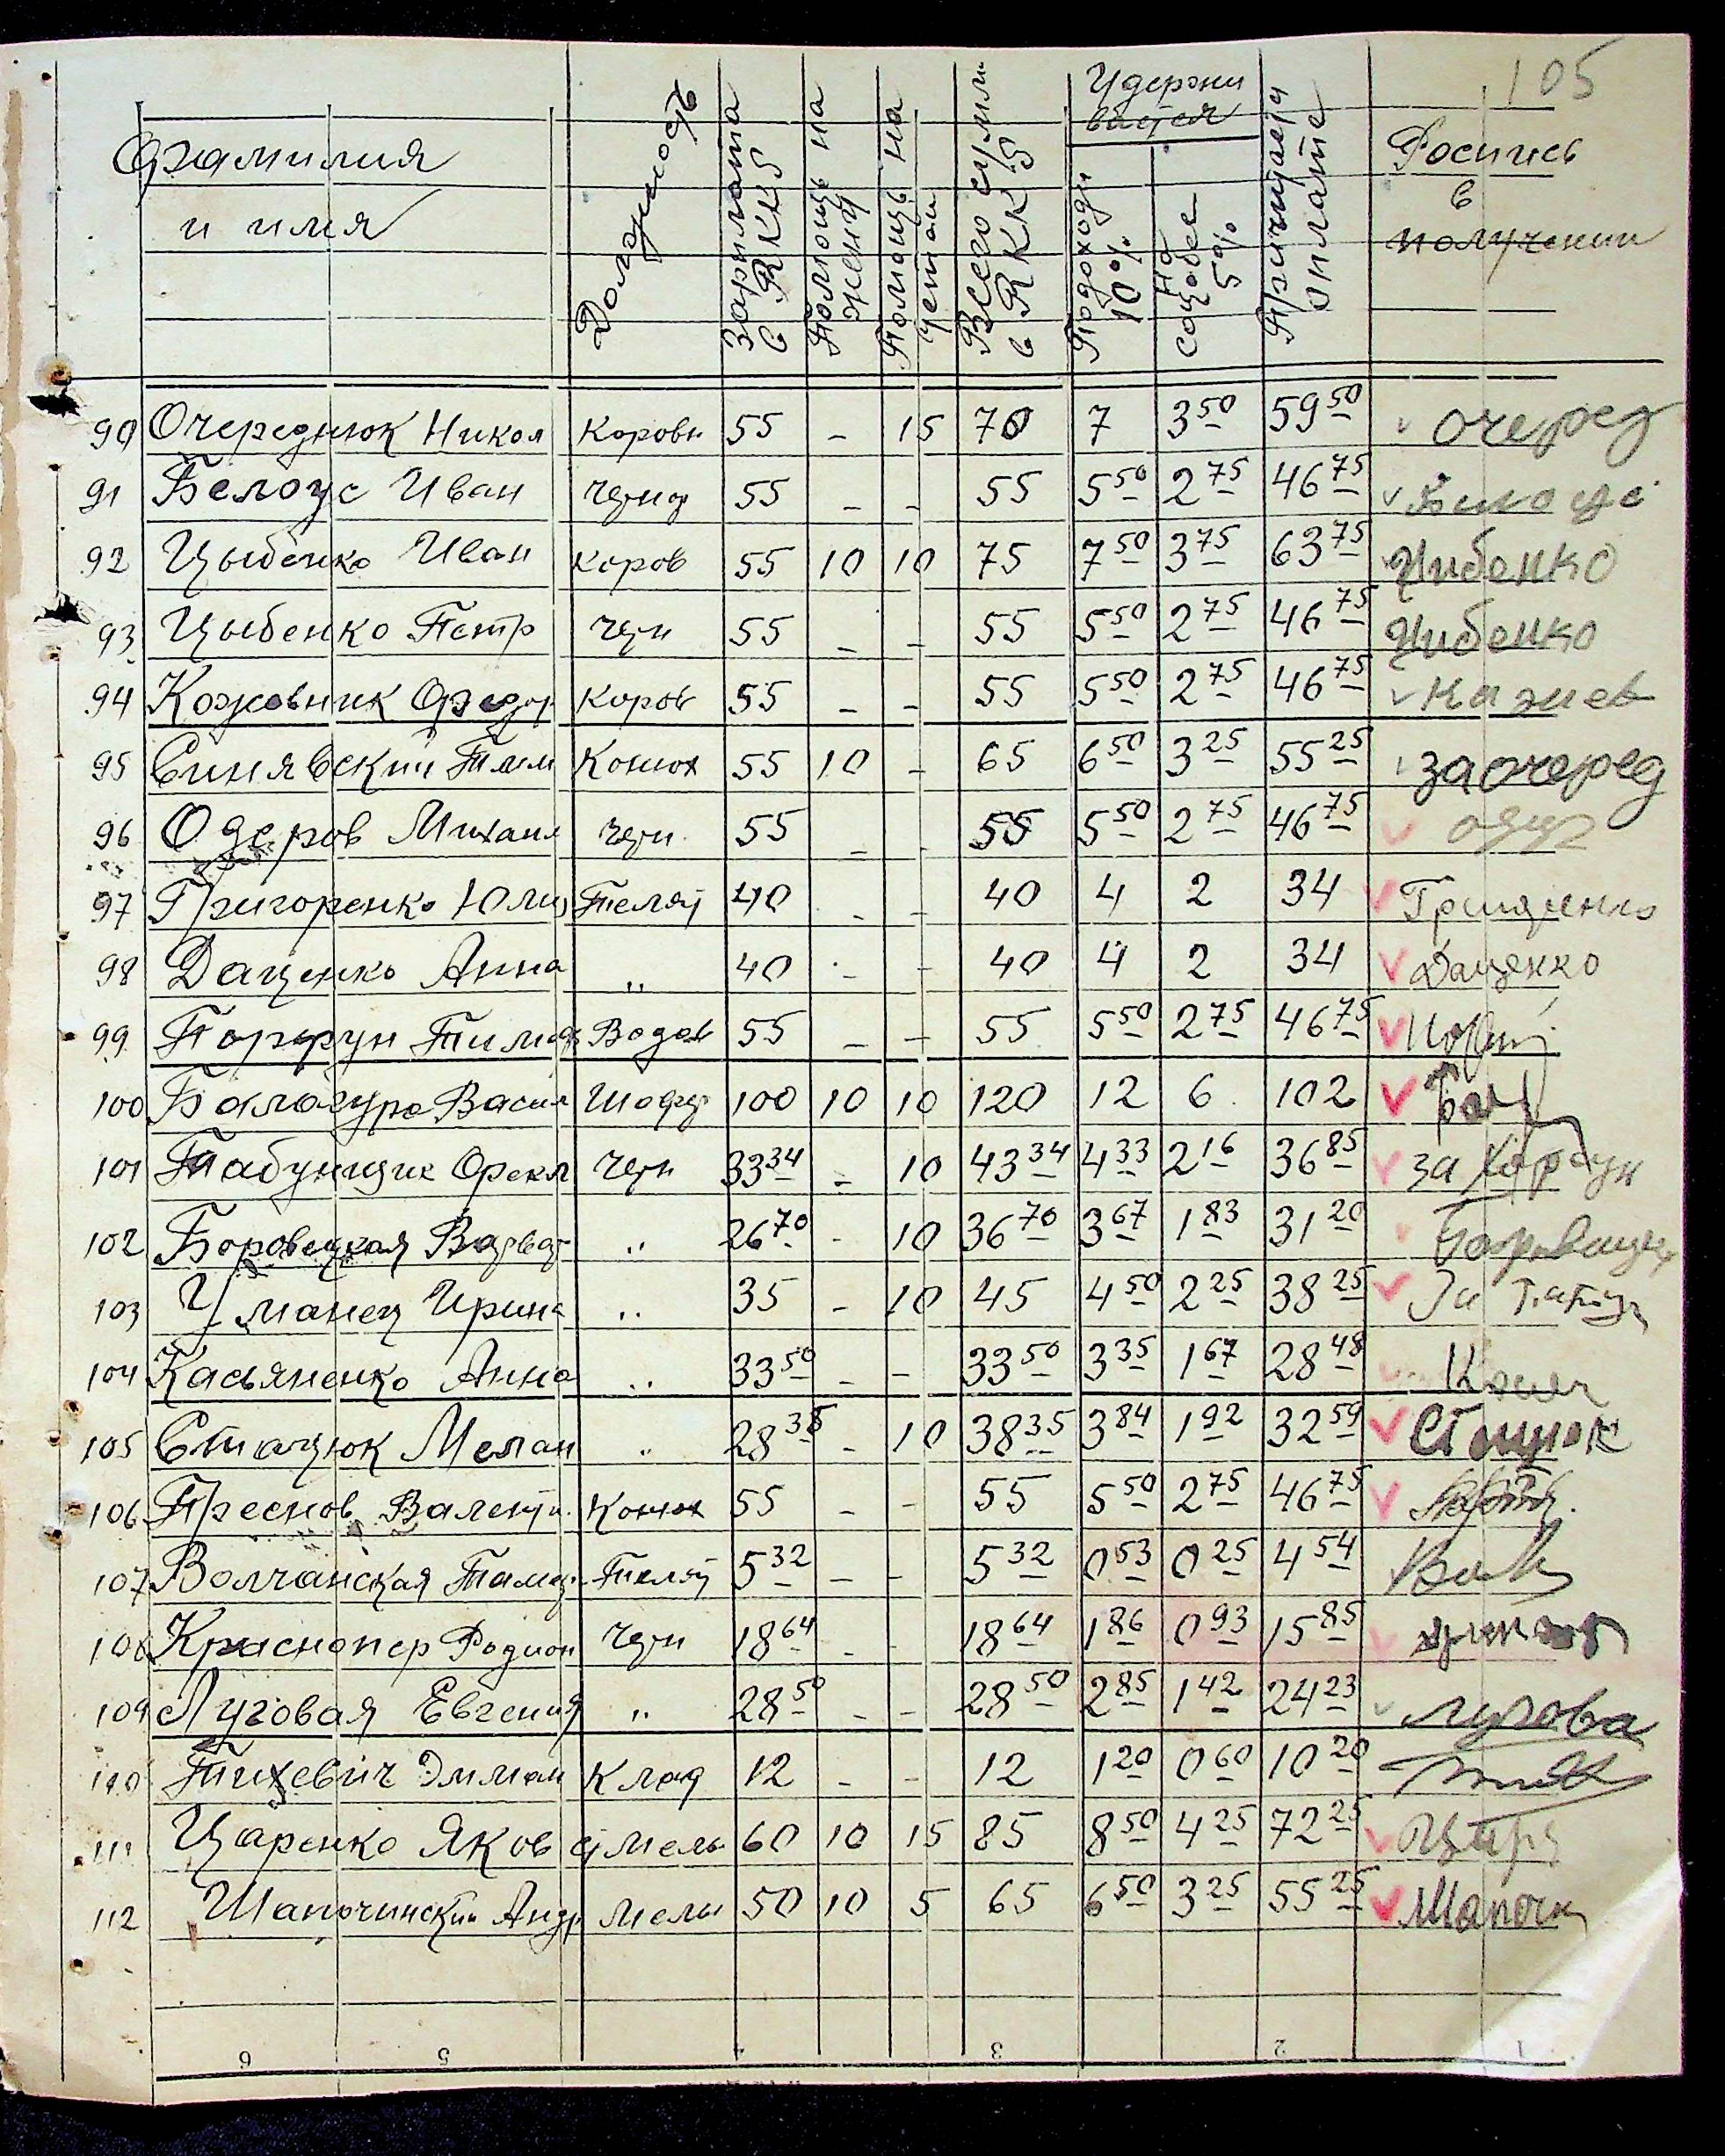 105
Фамилия и имя
Должность
Зарплата в RKKS
Помощь на жену
Помощь на детей
Всего сумма в RKKS
Удерживается
Подоходн 10%
На соцобес 5%
Причитается к оплате
Роспись в получении
90 Очереднюк Никол Коровн 55 – 15 70 7 3 50 59 50 очеред
91 Белоус Иван Черн 55 – – 55 5 50 2 75 46 75 Билоус
92 Цыбенко Иван Коров 55 10 10 75 7 50 3 75 63 75 Цибенко
93 Цыбенко Петр Черн 55 – – 55 5 50 2 75 46 75 Цибенко
94 Кожовник Федор Коров 55 – – 55 5 50 2 75 46 75
95 Синявский Тим Конюх 55 10 – 65 6 50 3 25 55 25 за очеред
96 Одеров Михаил Черн 55 – – 55 5 50 2 75 46 75
97 Григоренко Юли Телят 40 – – 40 4 2 34
98 Даценко Анна " 40 – – 40 4 2 34 Даценко
99 Порфун Тимоф Водов 55 – – 55 5 50 2 75 46 75
100 Балагура Васил Шофер 100 10 10 120 12 6 102
101 Табунщик Фекл Черн 33 34 – 10 43 34 4 33 2 16 36 85 за
102 Боровецкая Варвар " 26 70 – 10 36 70 3 67 1 83 31 20
103 Уманец Ирина " 35 – 10 45 4 50 2 25 38 25 За
104 Касьяненко Анна " 33 50 – – 33 50 3 35 1 67 28 48
105 Стацюк Мелан " 28 35 – 10 38 35 3 84 1 92 32 59 Стацюк
106 Преснов Валенти Конюх 55 – – 55 5 50 2 75 46 75
107 Волчанская Тамар Телят 5 32 – – 5 32 0 53 0 25 4 54
108 Красnопер Родион Черн 18 64 – – 18 64 1 86 0 93 15 85
109 Луговая Евгения " 28 50 – – 28 50 2 85 1 42 24 23 лугова
110 Тихевич Эмман Клад 12 – – 12 1 20 0 60 10 20
111 Царенко Яков ст Мель 60 10 15 85 8 50 4 25 72 25
112 Шапочинский Андр Мельн 50 10 5 65 6 50 3 25 55 25 Шапочн
6 5 3 2 1